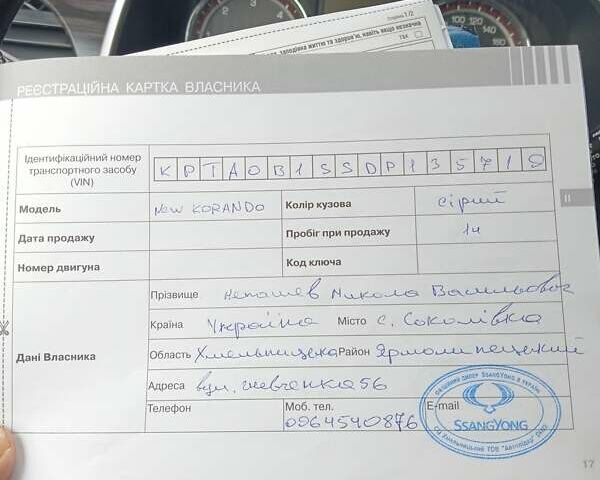 Сторінка 1/2
так
РЕЄСТРАЦІЙНА КАРТКА ВЛАСНИКА
Ідентифікаційний номер транспортного засобу (VIN) KPTA0B1SSDP135718
Модель New KORANDO Колір кузова сірий
Дата продажу Пробіг при продажу 14
Номер двигуна Код ключа
Дані Власника
Прізвище Микола Васильович
Країна Україна Місто с. Соколівка
Область Хмельницька Район Ярмолинецький
Адреса вул. Шевченка 56
Телефон Моб. тел. 0964540876 E-mail
SSANGYONG
II
17